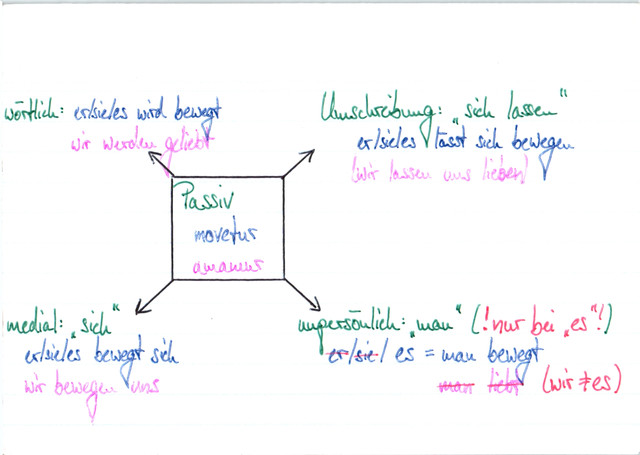 wörtlich: er/sie/es wird bewegt
wir werden geliebt
Umschreibung: „sich lassen“
er/sie/es lässt sich bewegen
(wir lassen uns lieben)
Passiv
movetur
amamur
medial: „sich“
er/sie/es bewegt sich
wir bewegen uns
unpersönlich: „man“ (!nur bei „es“!)
er/sie/es = man bewegt
man liebt (wir ≠ es)